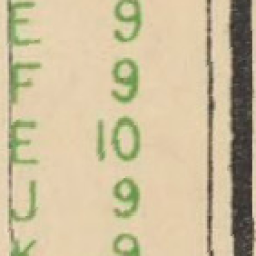 E 9
F 9
E 10
J 9
K 9